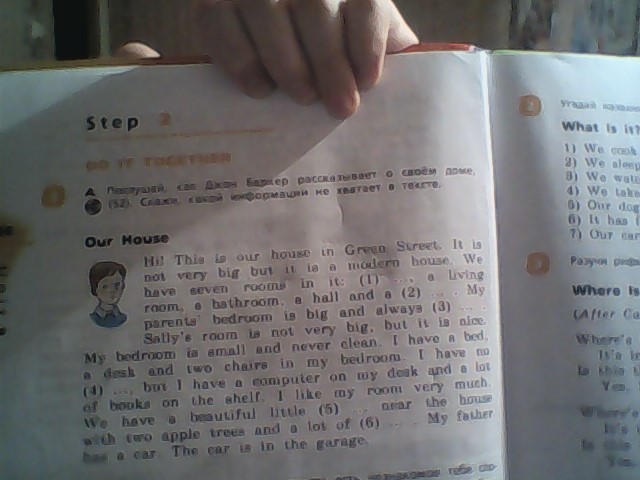 Step 2
DO IT TOGETHER
1
A Послушай, как Джон Баркер рассказывает о своём доме.
(52). Скажи, какой информации не хватает в тексте.
Our House
Hi! This is our house in Green Street. It is
not very big but it is a modern house. We
have seven rooms in it: (1) ..., a living
room, a bathroom, a hall and a (2) ... . My
parents' bedroom is big and always (3) ... .
Sally's room is not very big, but it is nice.
My bedroom is small and never clean. I have a bed,
a desk and two chairs in my bedroom. I have no
(4) ..., but I have a computer on my desk and a lot
of books on the shelf. I like my room very much.
We have a beautiful little (5) ... near the house
with two apple trees and a lot of (6) ... . My father
has a car. The car is in the garage.
2
Угадай
What is it?
1) We cook
2) We sleep
3) We
4) We
5) Our dog
6) It has
7) Our car
3
Разучи
Where is
Where's
It's
Is
Yes.
Where's
It's
Is
Yes.